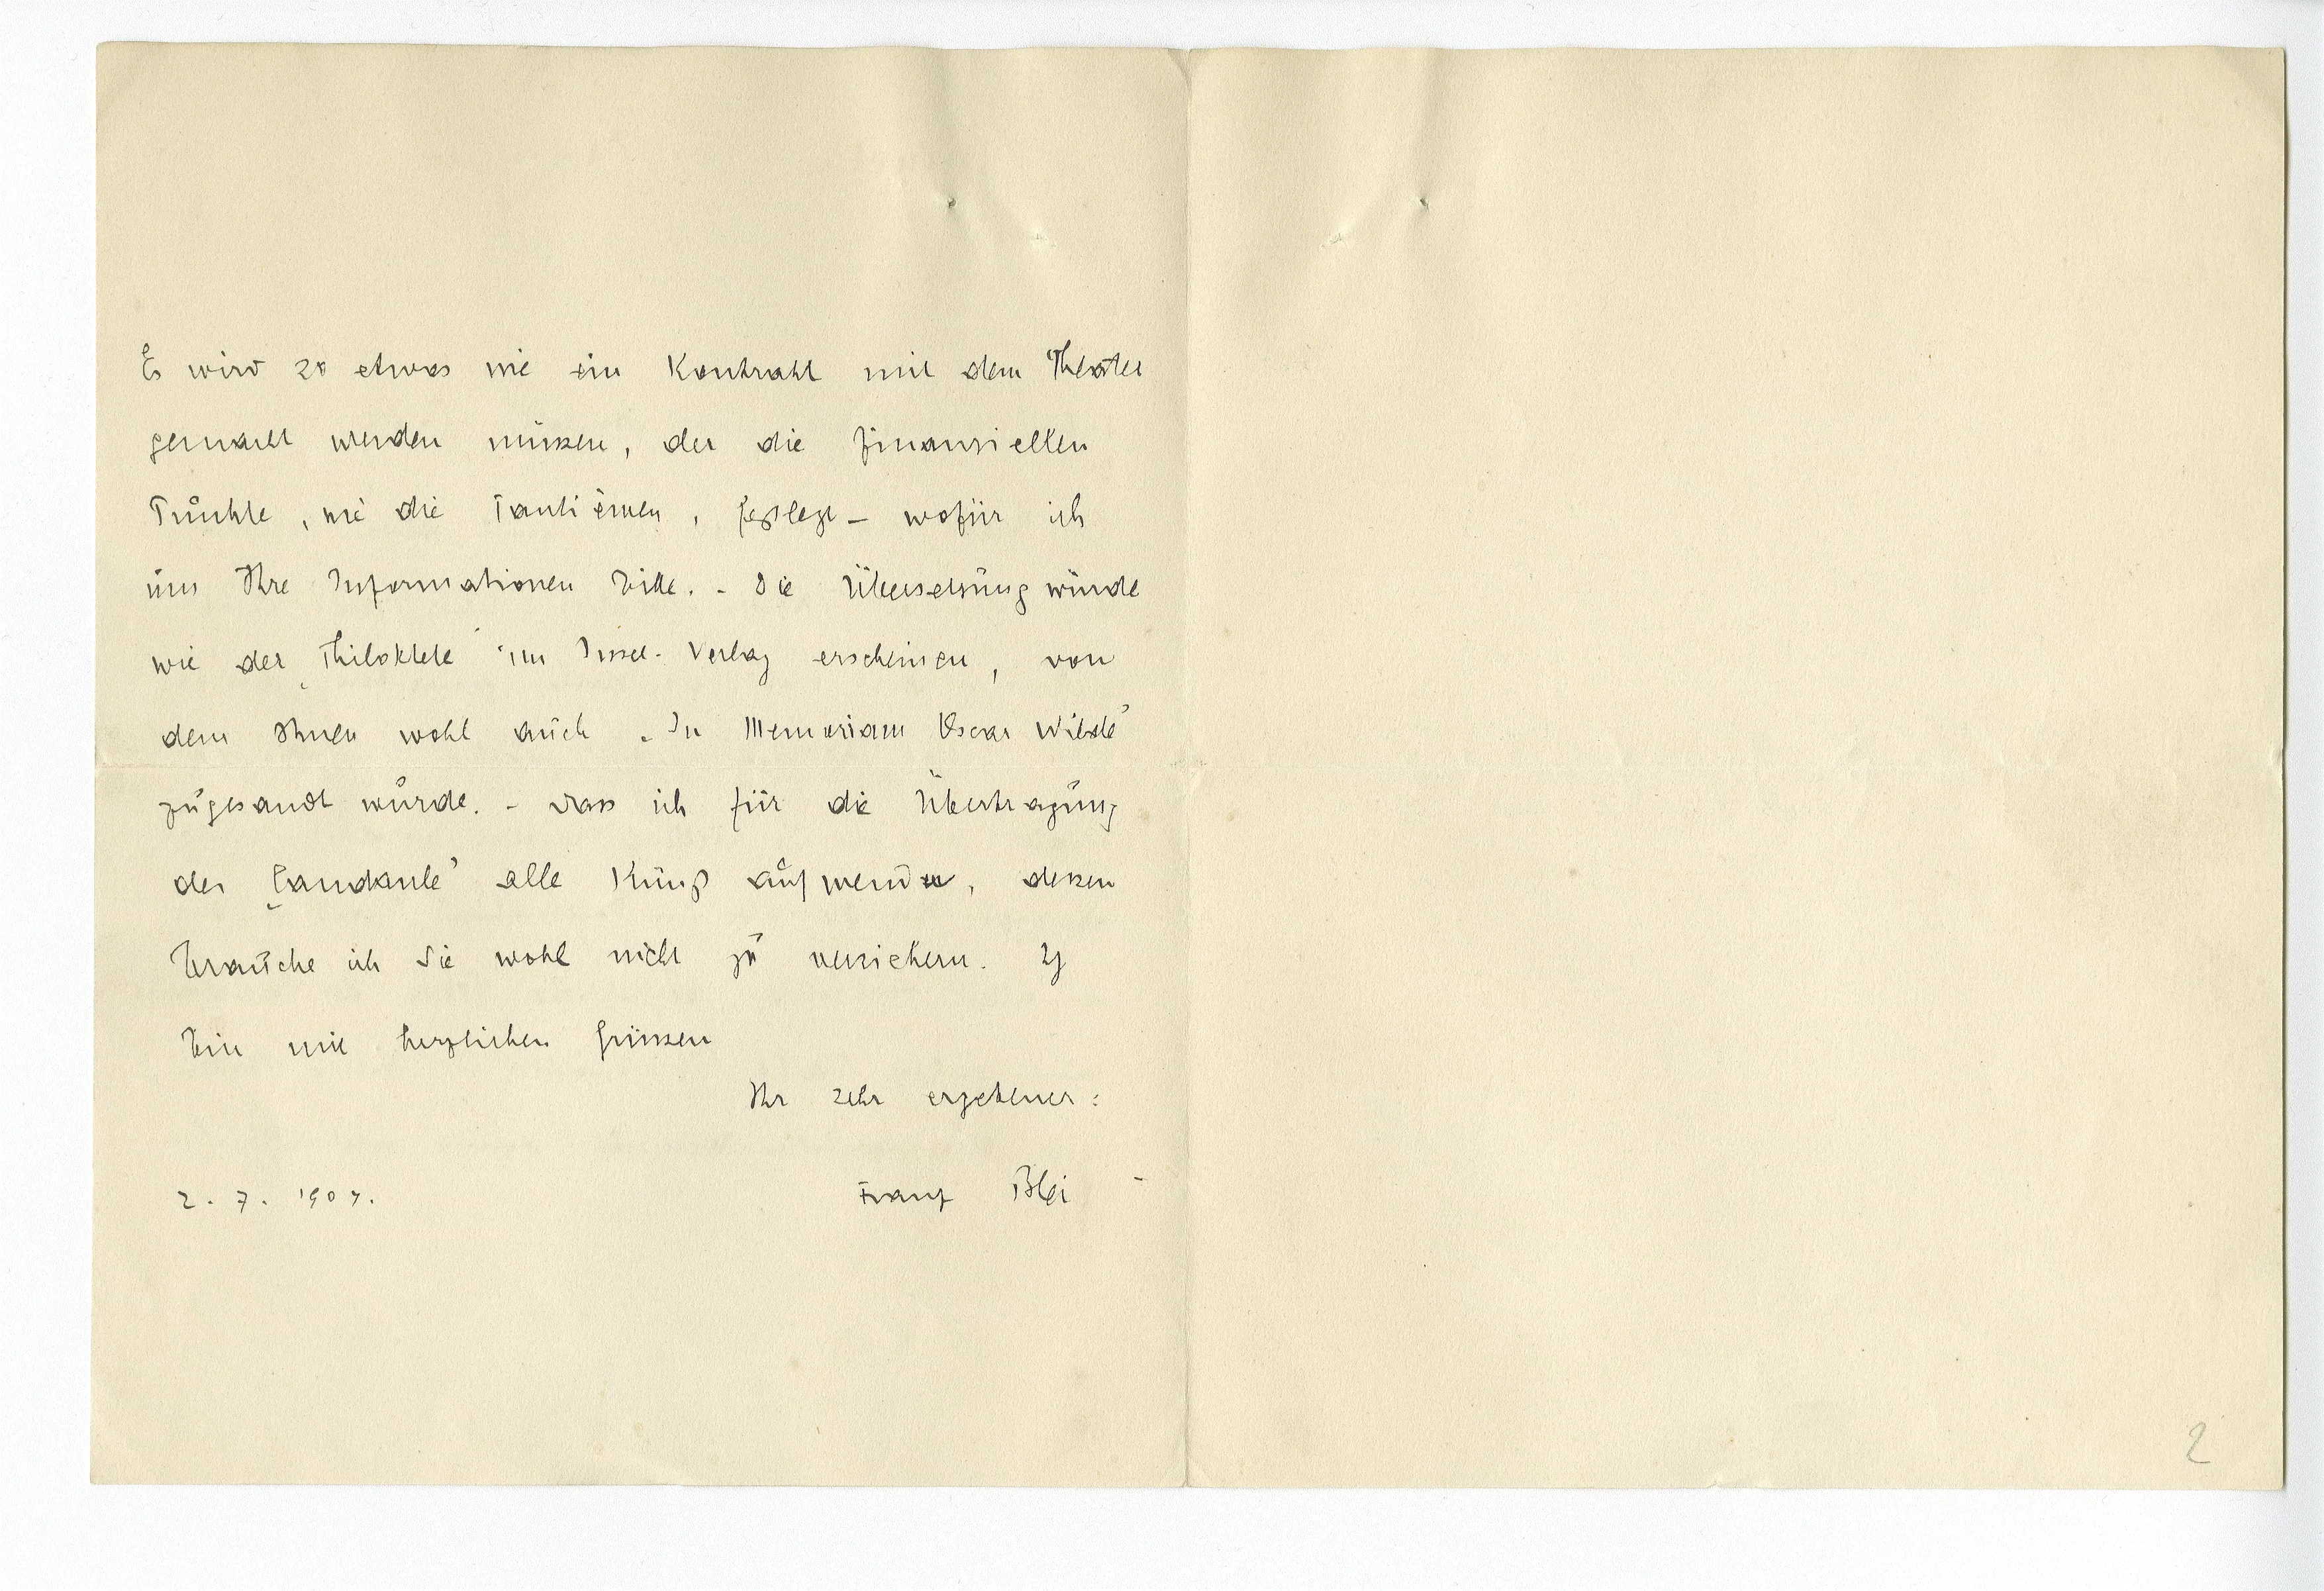 Es wird so etwas wie ein Kontrakt mit dem Theater
gemacht werden müssen, der die finanziellen
Punkte, wie die Tantièmen, festlegt – wofür ich
um Ihre Informationen bitte. – Die Übersetzung würde
wie der „Philoktete“ im Insel-Verlag erscheinen, von
dem Ihnen wohl auch „In Memoriam Oscar Wilde“
zugesandt wurde. – Dass ich für die Übertragung
des „Candaule“ alle Kunst aufwende, dessen
brauche ich Sie wohl nicht zu versichern. Ich
bin mit herzlichen Grüssen
Ihr sehr ergebener:
2. 7. 1904. Franz Blei –
2